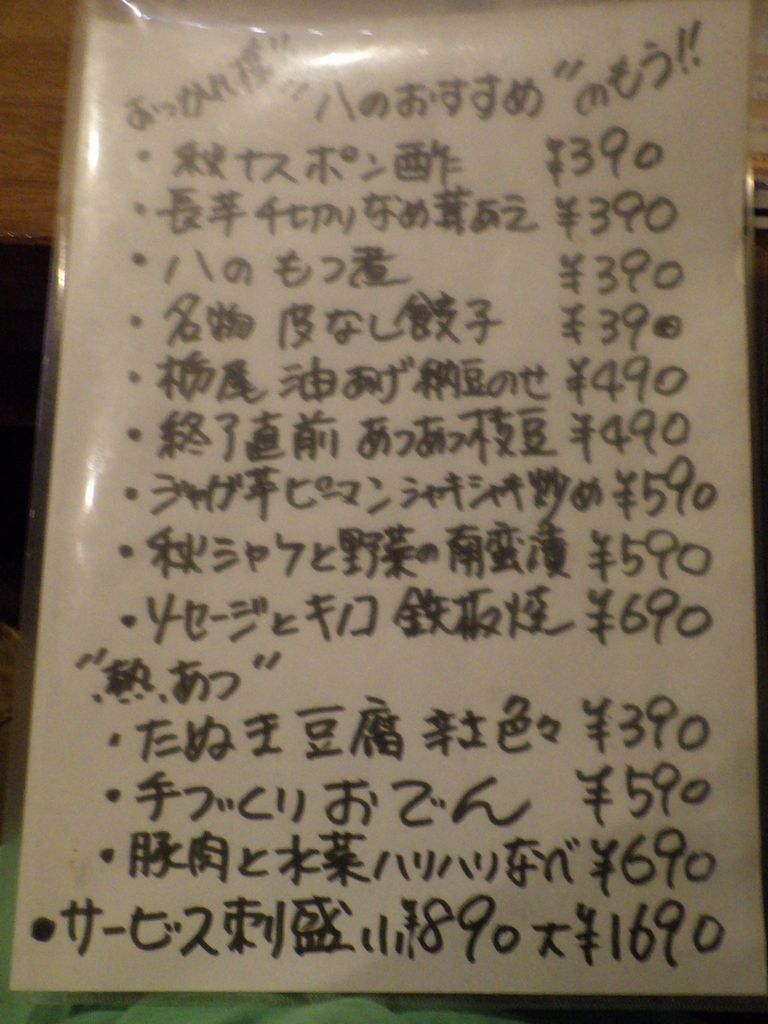 おつかれ様!! "八のおすすめ" のもう!!
・秋ナスポン酢 ¥390
・長芋千切りなめ茸あえ ¥390
・八の もつ煮 ¥390
・名物 皮なし餃子 ¥390
・栃尾 油あげ納豆のせ ¥490
・終了直前 あつあつ枝豆 ¥490
・ジャガ芋ピーマンシャキシャキ炒め ¥590
・秋シャケと野菜の南蛮漬 ¥590
・ソーセージとキノコ 鉄板焼 ¥690
"熱、あつ"
・たぬき豆腐 ¥390
・手づくりおでん ¥590
・豚肉と水菜ハリハリなべ ¥690
・サービス刺盛 小¥890 大¥1690